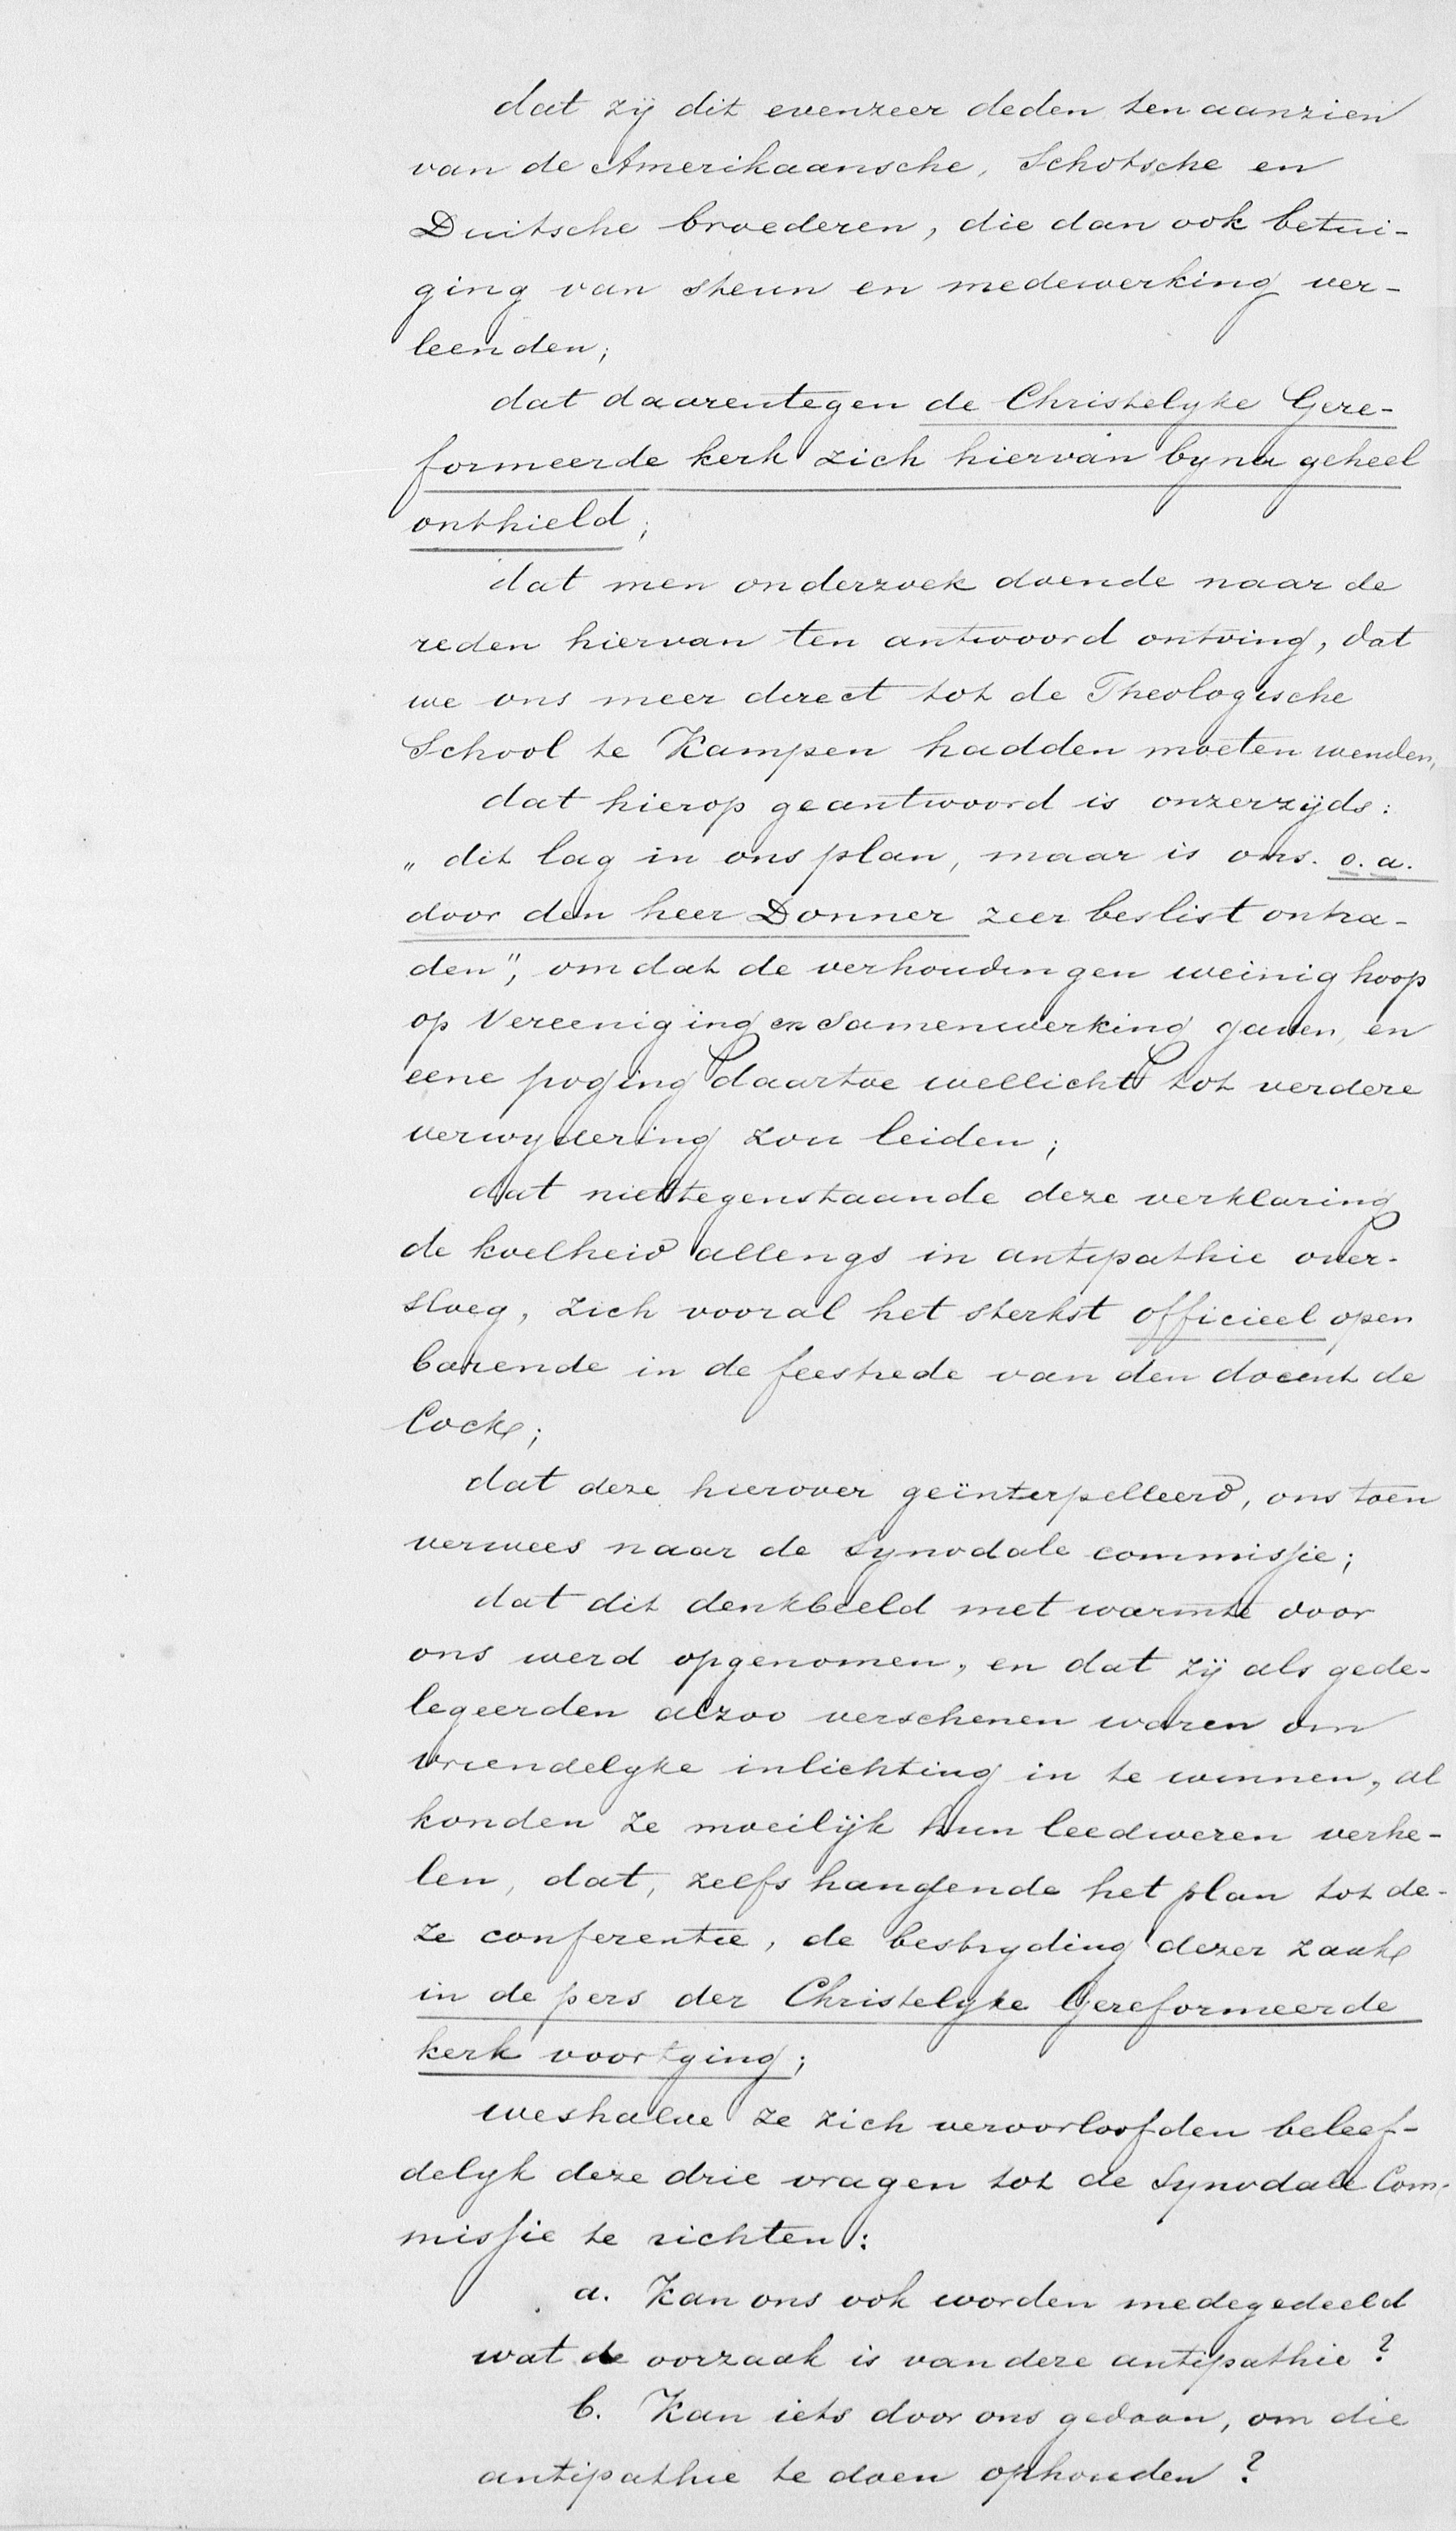 dat zij dit evenzeer deden ten aanzien
van de Amerikaansche, Schotsche en
Duitsche broederen, die dan ook betui-
ging van steun en medewerking ver-
leenden;
dat daarentegen de Christelyke Gere-
formeerde kerk zich hiervan byna geheel
onthield;
dat men onderzoek doende naar de
reden hiervan ten antwoord ontving, dat
we ons meer direct tot de Theologische
School te Kampen hadden moeten wenden,
dat hierop geantwoord is onzerzijds:
„dit lag in ons plan, maar is ons. o. a.
door den heer Donner zeer beslist ontra-
den", omdat de verhoudingen weinig hoop
op Vereeniging en Samenwerking gaven, en
eene poging daartoe wellicht tot verdere
verwydering zou leiden;
dat niettegenstaande deze verklaring
de koelheid allengs in antipathie over-
sloeg, zich vooral het sterkst officieel open
barende in de feestrede van den docent de
Cock;
dat deze hierover geïnterpelleerd, ons toen
verwees naar de synodale commissie;
dat dit denkbeeld met warmte door
ons werd opgenomen, en dat zij als gede-
legeerden alzoo verschenen waren om
vriendelyke inlichting in te winnen, al
konden ze moeilijk hun leedwezen verhe-
len, dat, zelfs hangende het plan tot de-
ze conferentie, de bestryding dezer zaak
in de pers der Christelyke Gereformeerde
kerk voortging;
weshalve ze zich veroorloofden beleef-
delyk deze drie vragen tot de Synodale Com-
missie te richten:
a. Kan ons ook worden medegedeeld
wat de oorzaak is van deze antipathie?
b. Kan iets door ons gedaan, om die
antipathie te doen ophouden?